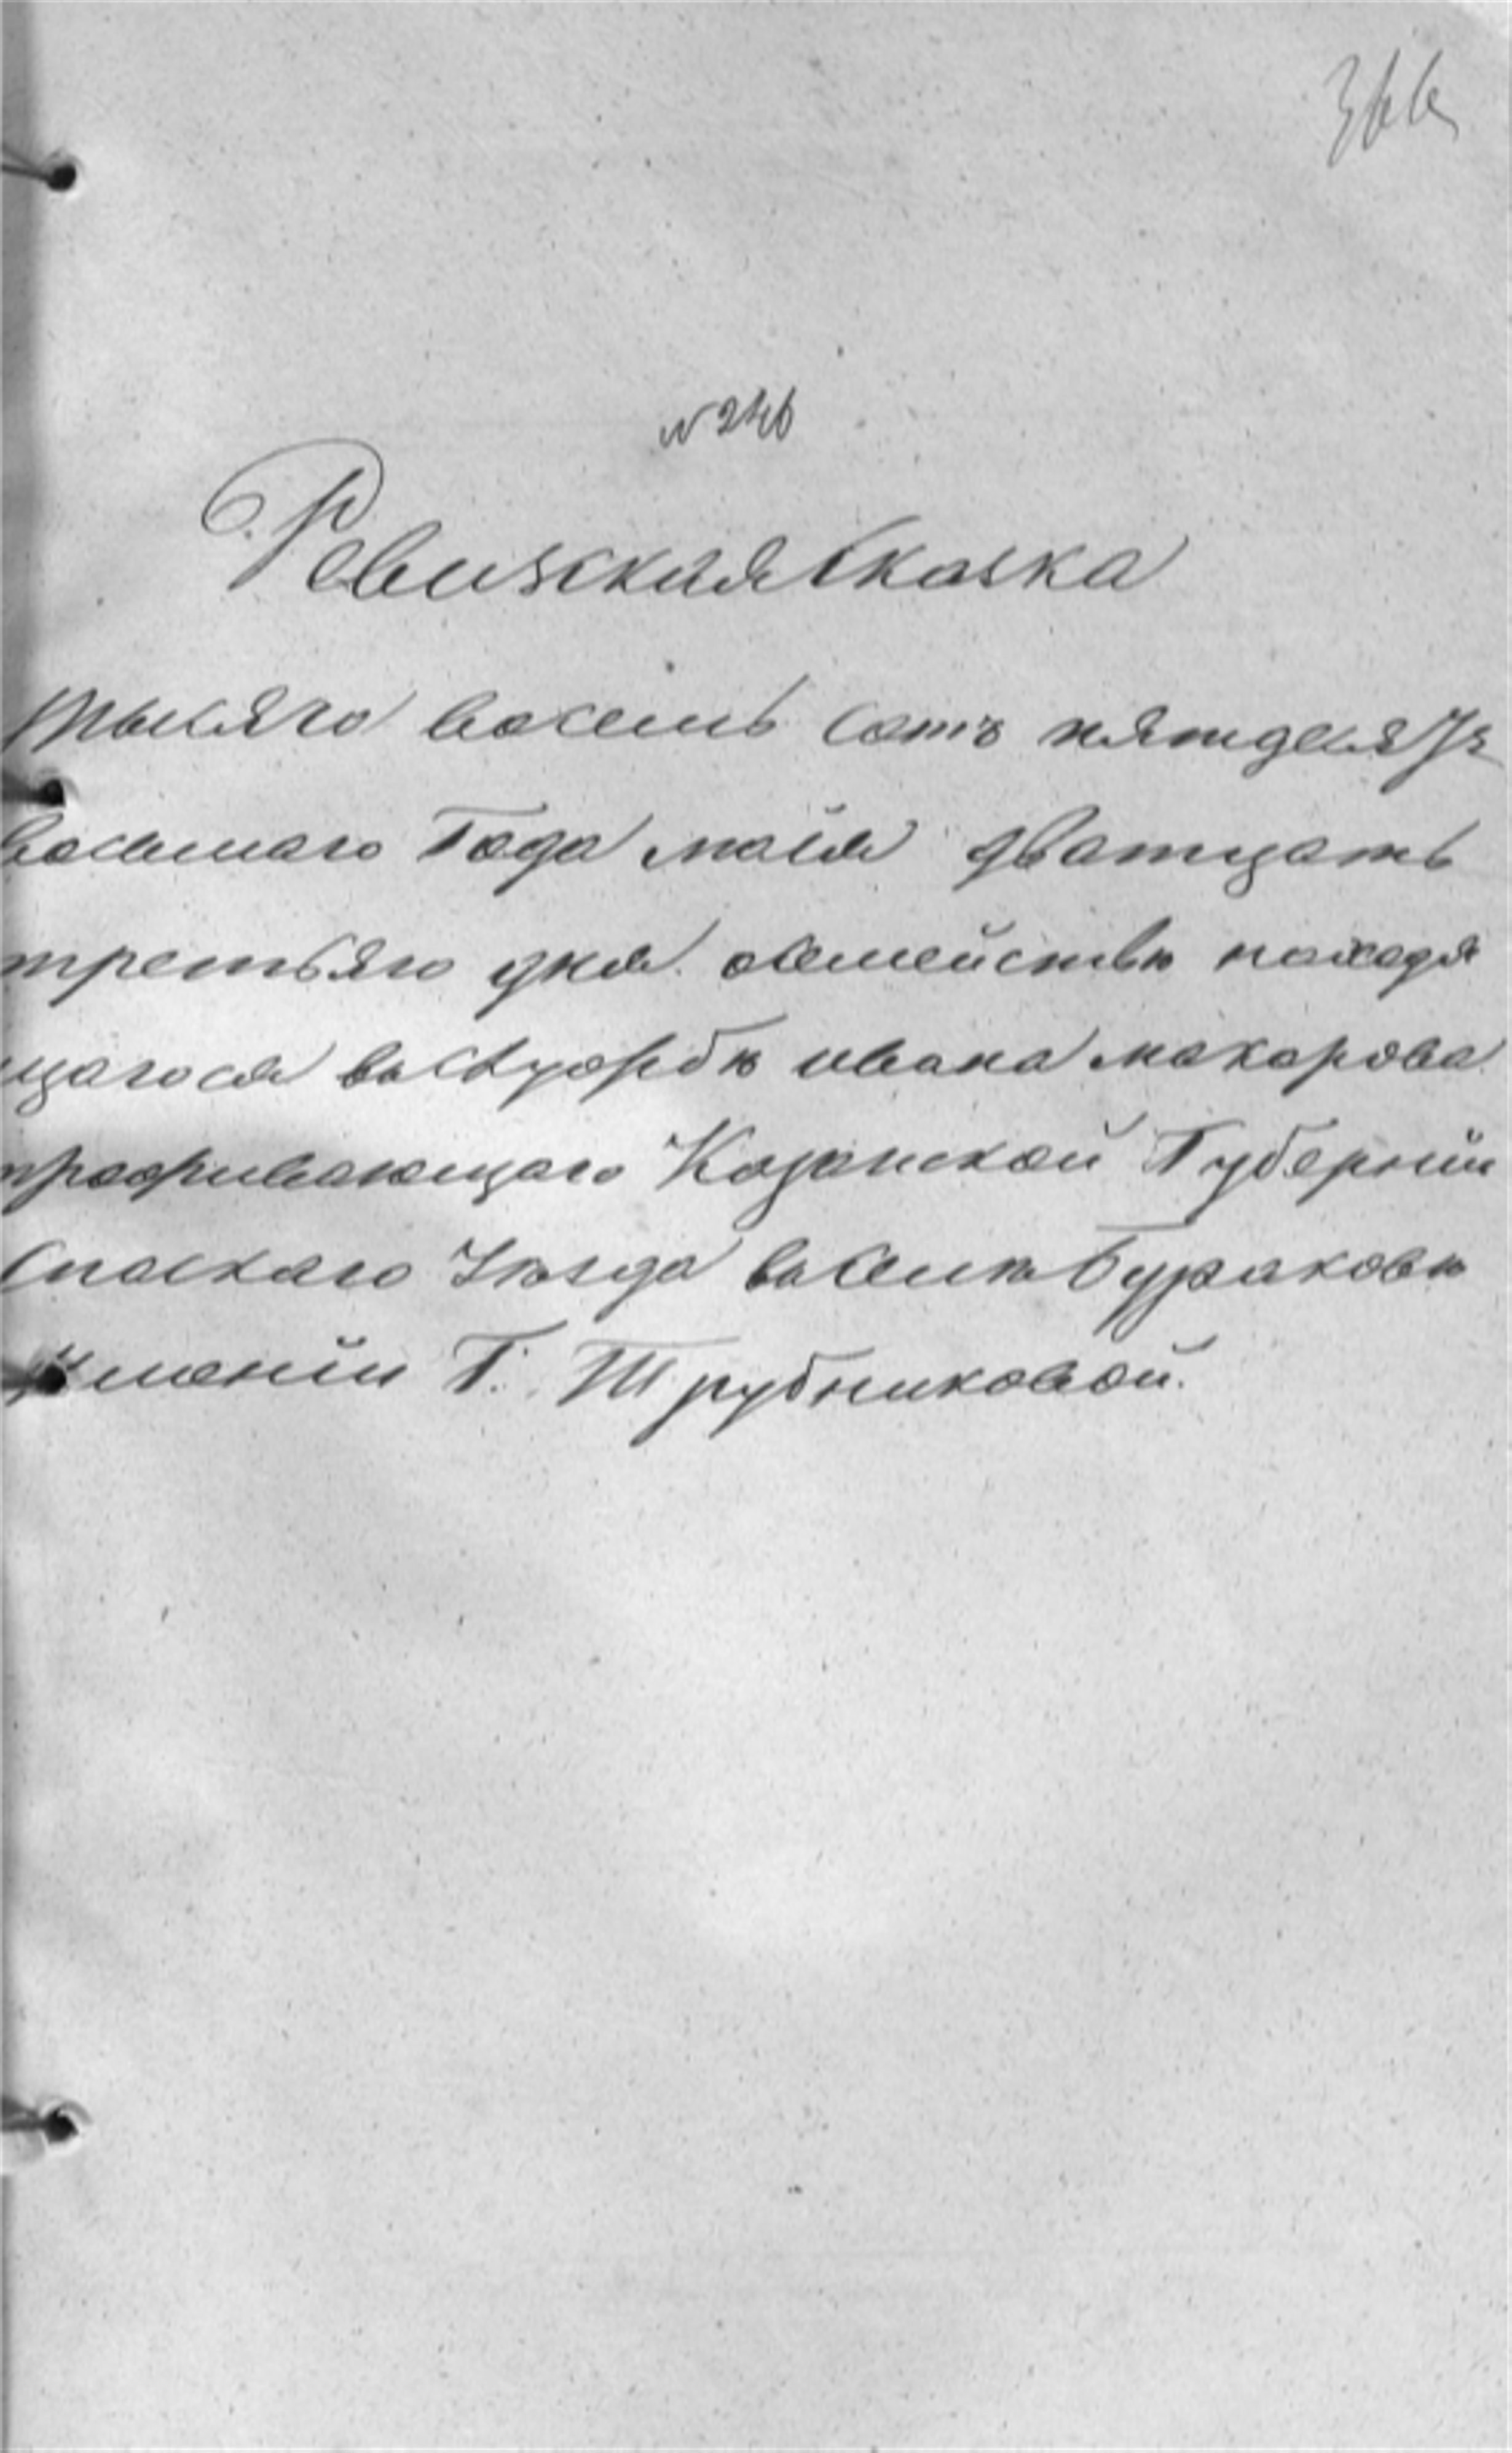 366
№ 246
Ревизская Сказка
тысяча восемь сотъ пятдесятъ
восьмаго Года маія дватцать
третьяго дня. осемействѣ находя
щагося вослужбѣ ивана макарова
проживающаго Казанской Губерніи
Спаскаго Уѣзда воселѣ Бураковѣ
имѣніи Г. Трубниковой.